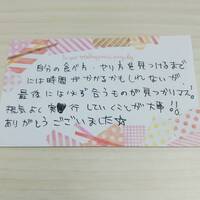 自分の食べ方・やり方を見つけるまで
には時間がかかるかもしれないが、
最後にはわず合うものが見つかりマス!
根気よく実行していくことが大事!!
ありがとうございました☆